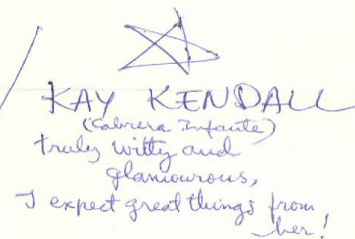 KAY KENDALL
(Cabrera Infante)
truly witty and
glamourous,
I expect great things from
her!